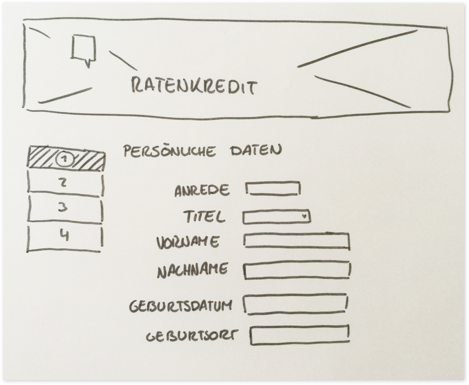 RATENKREDIT
1
PERSÖNLICHE DATEN
2
3
4
ANREDE
TITEL
VORNAME
NACHNAME
GEBURTSDATUM
GEBURTSORT